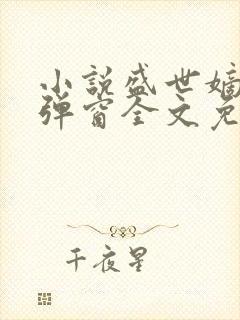 小说盛世嫡
弹窗全文免
千夜星